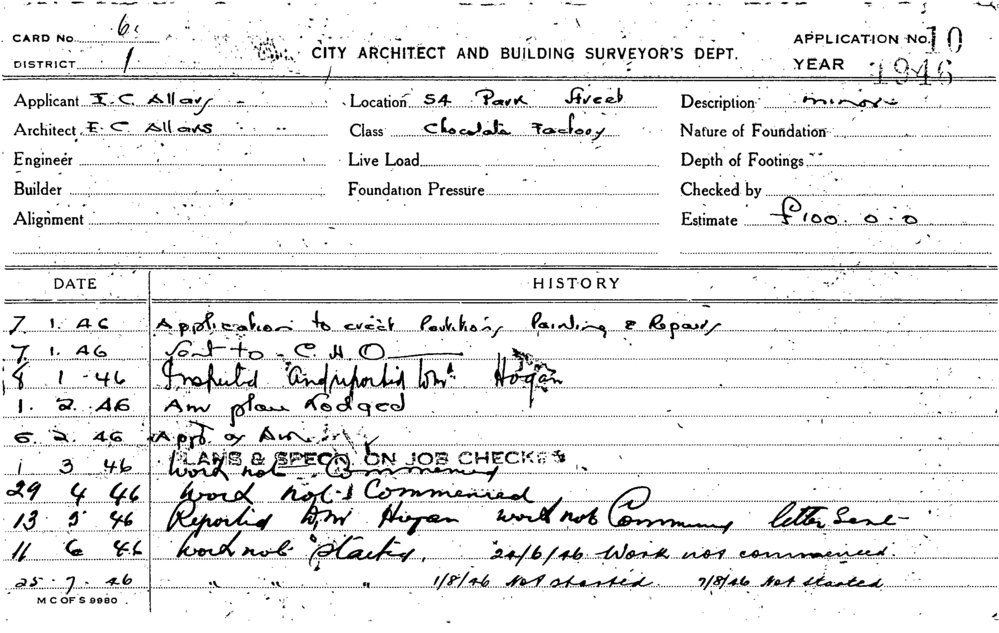 CARD No. 6. CITY ARCHITECT AND BUILDING SURVEYOR'S DEPT. APPLICATION No. 10
DISTRICT 1 YEAR 1946
Applicant E. C Allars Location 54 Park Street Description minor
Architect E. C Allars Class Chocolate Factory Nature of Foundation
Engineer Live Load Depth of Footings
Builder Foundation Pressure Checked by
Alignment Estimate £100. 0. 0
DATE HISTORY
7 1. 46 Application to erect Partitions, Painting & Repairs
7 1. 46 Sent to C. H. O
8 1 46 Inspected and reported Wm Hogan
1. 2. 46 Am plan Lodged
6. 2. 46 Appd as Am
PLANS & SPECN ON JOB CHECKED
1 3 46 Work not Commencing
29 4 46 Work not Commenced
13 5 46 Reported Wm Hogan work not Commencing letter Sent
11 6 46 Work not Started. 24/6/46 Work not commenced
25. 7. 46 " " " 1/8/46 Not started. 7/8/46 Not Started
M C OF S 9980